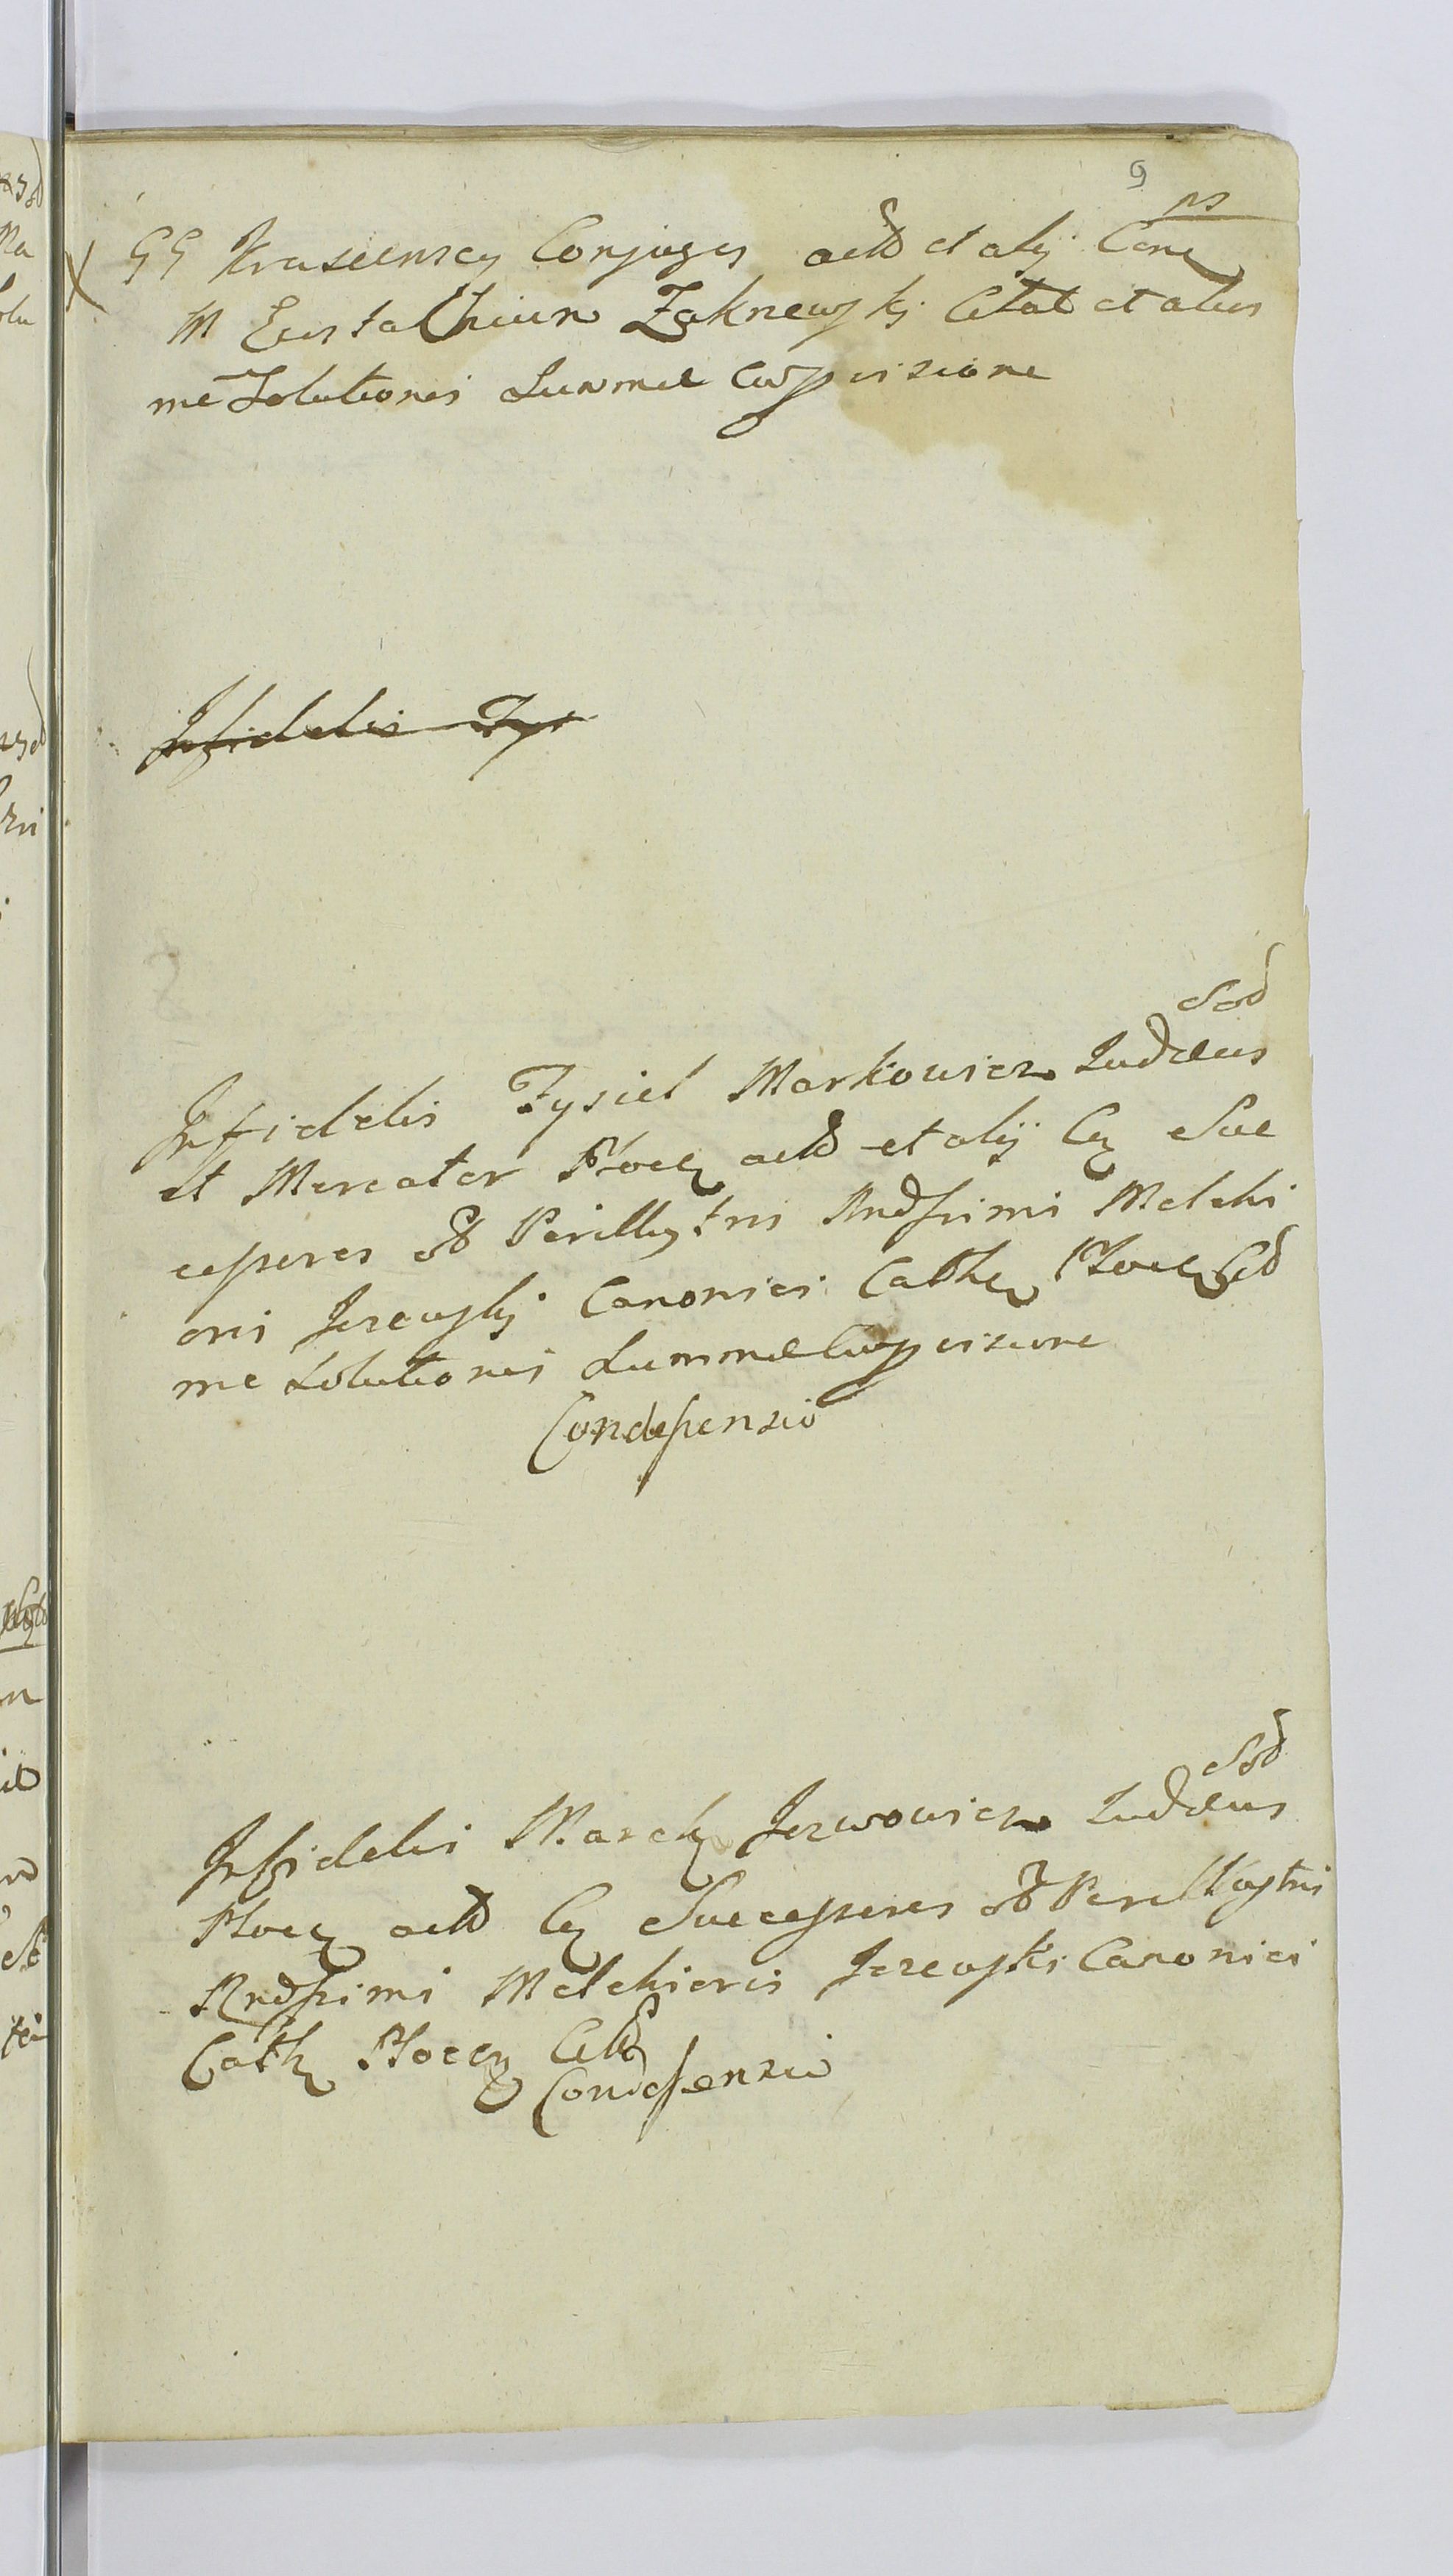 9
ns
GG Kraszensey Conjuges actd et alij Cone
M Eustathium Zakrewskj Citat et alios
me Solutionis Summae Cui provisione
Infidelis Fys
Sod
Infidelis Fysiel Markowicz Judaeus
et Mercator Plocz actd et alij Cq Suc
cessores ol Perillustris Rndssimi Melchi
oris Jezewskj Canonici Cathz Plocz Citd
me Solutionis Summae Cui provisione
Condescensio
Sod
Infidelis Marek Jozwowicz Judaeus
Plocz actd Cq Successores ol Perillustris
Rndssimi Melchioris Jezewski Canonici
Cathz Plocz Citd
Condescensio